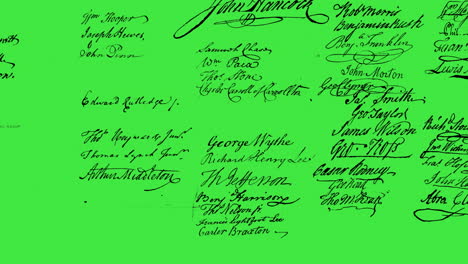 Wm Hooper
Joseph Hewes
John Penn
Edward Rutledge /.
Thos Heyward Junr.
Thomas Lynch Junr.
Arthur Middleton
John Hancock
Samuel Chase
Wm Paca
Thos Stone
Charles Carroll of Carrollton
George Wythe
Richard Henry Lee
Th Jefferson
Benj Harrison
Thos Nelson jr.
Francis Lightfoot Lee
Carter Braxton
Robt Morris
Benjamin Rush
Benj. Franklin
John Morton
Geo Clymer
Jas. Smith
Geo. Taylor
James Wilson
Geo. Ross
Caesar Rodney
Geo Read
Tho M:Kean